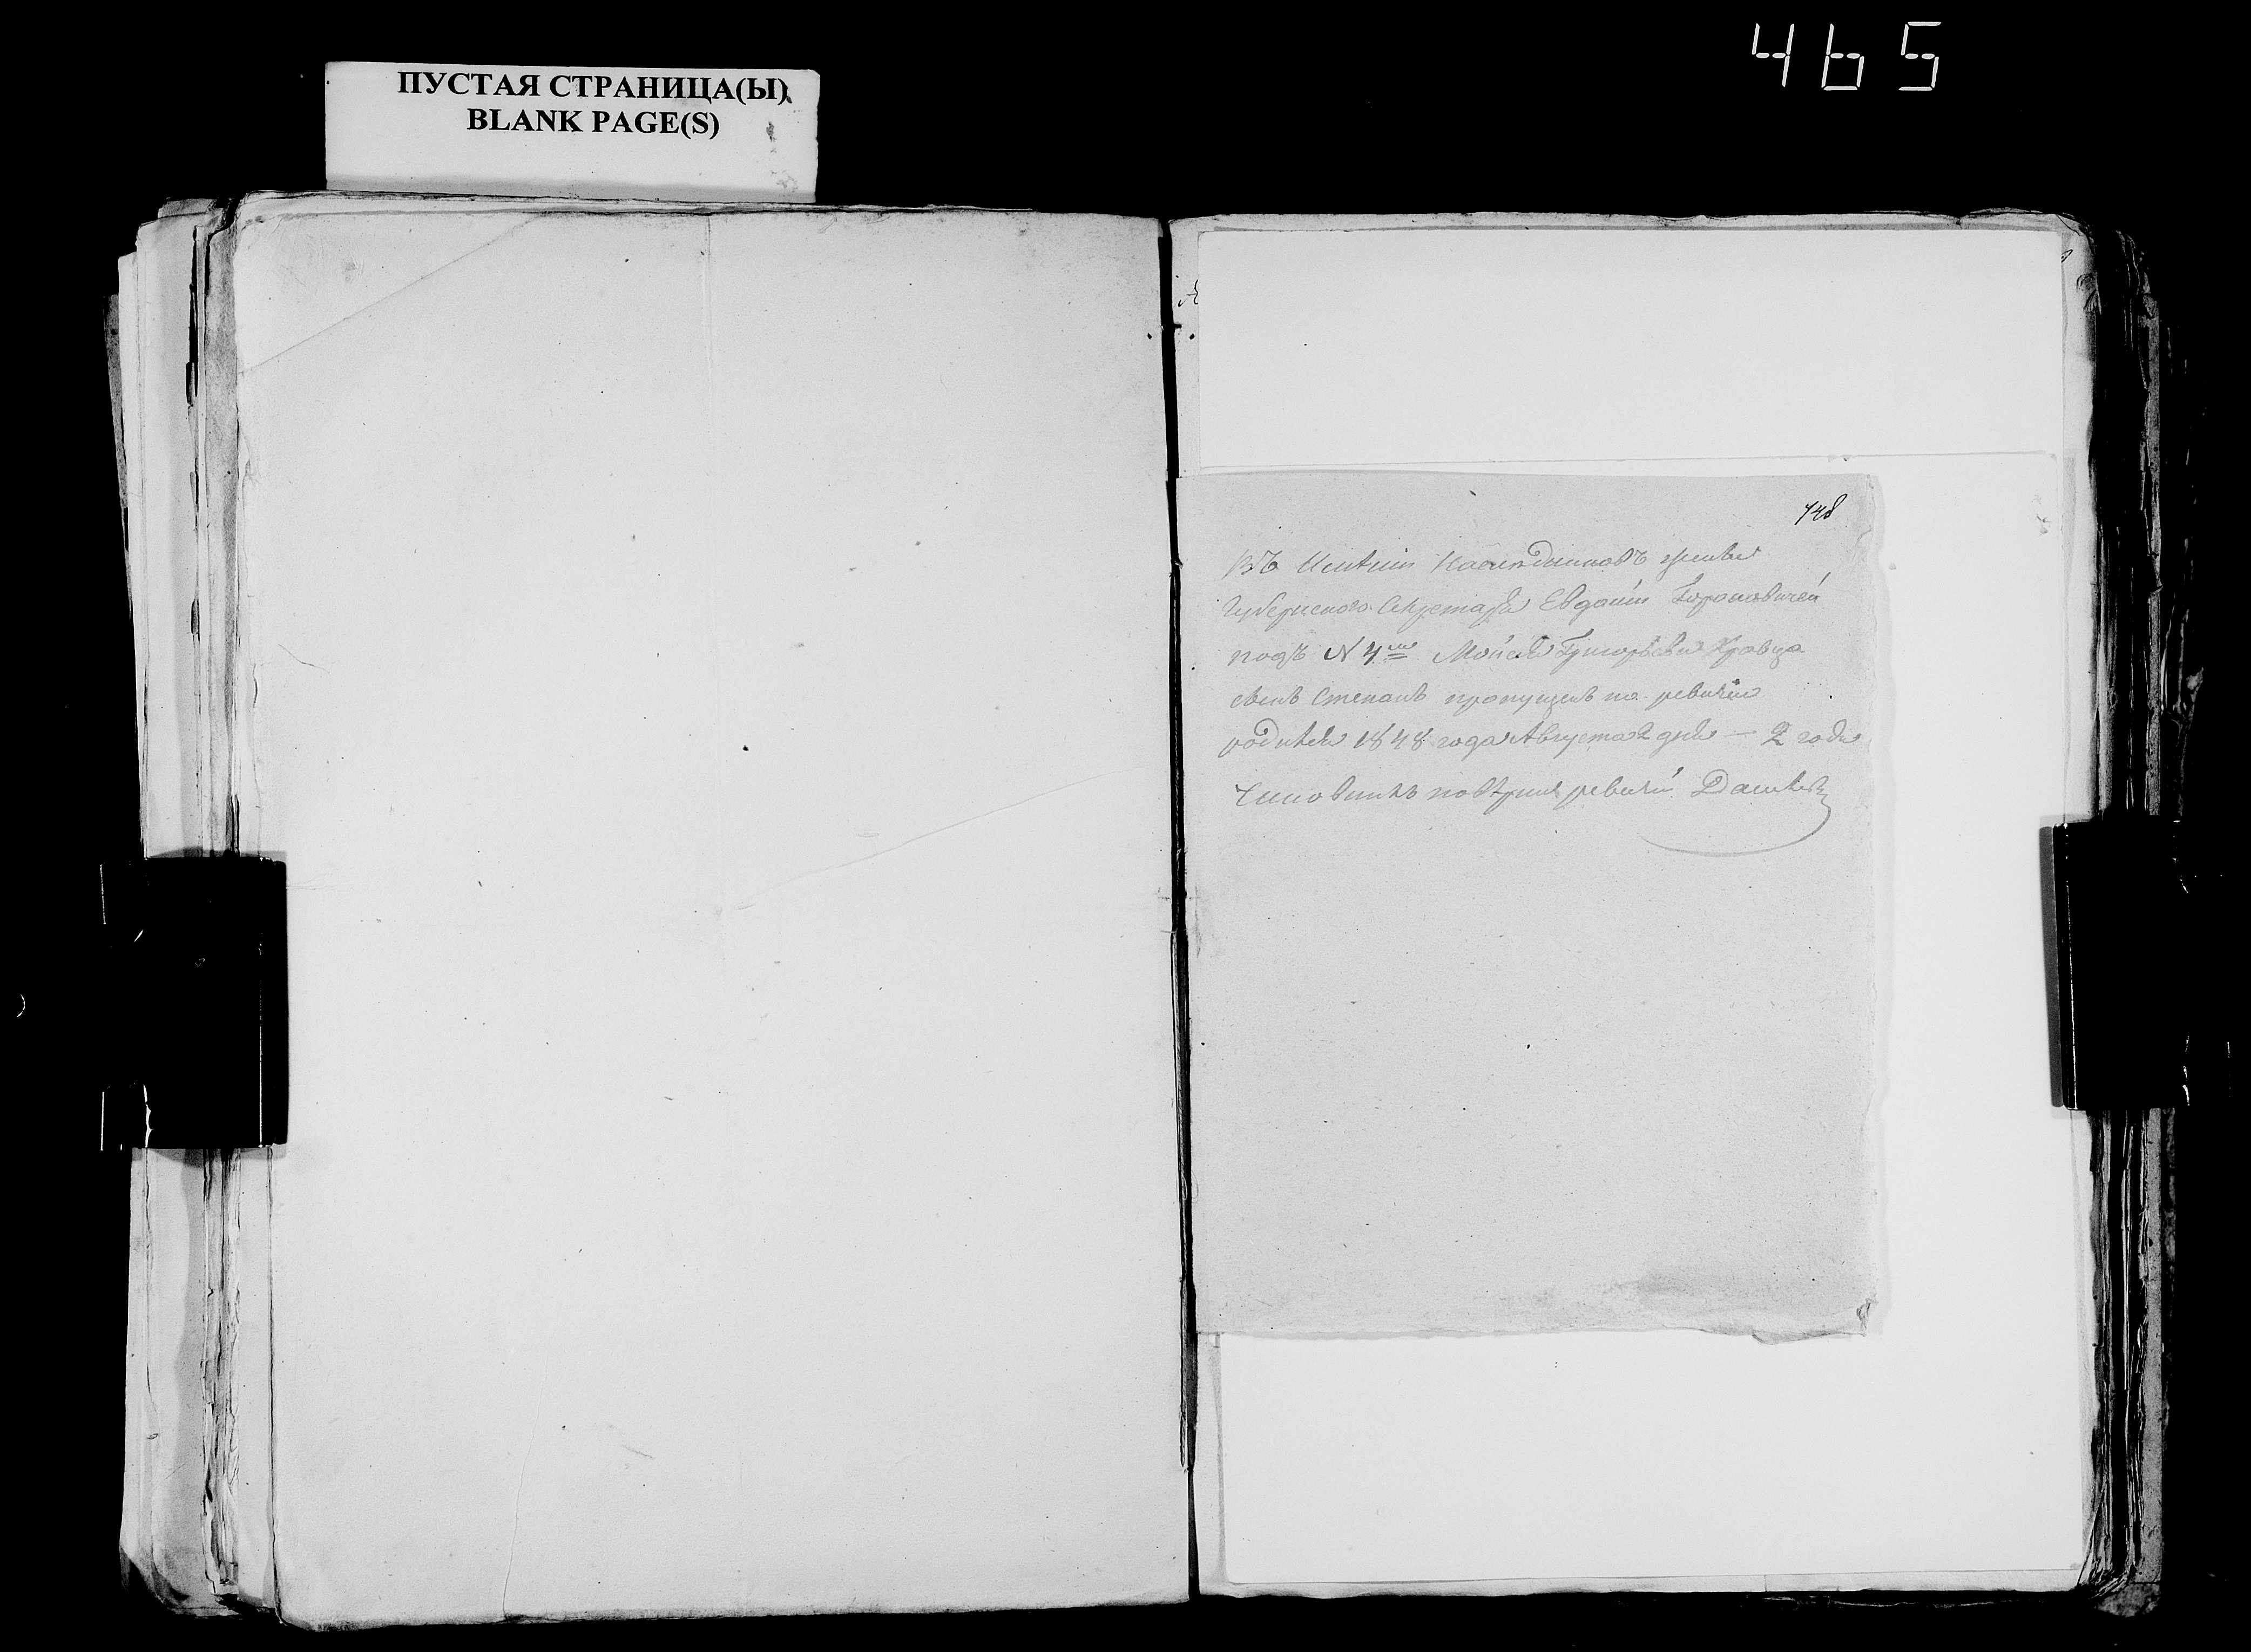 465
ПУСТАЯ СТРАНИЦА(Ы)
BLANK PAGE(S)
748
Въ Имѣнiи
Губернскаго Секретаря Евдокiи
подъ N 4мъ Моисея Григорьева Кравца
сынъ Степанъ пропущенъ по ревизiи
родился 1848 года Августа 2 дня — 2 года
Чиновникъ повѣрки ревизiи